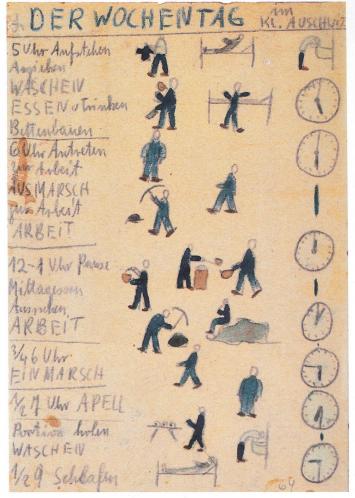 DER WOCHENTAG im
KL. AUSCHWITZ
5 Uhr Aufstehen
Anziehen
WASCHEN
ESSEN u Trinken
Bettenbauen
6 Uhr Antreten
zur Arbeit
AUSMARSCH
zur Arbeit
ARBEIT
12-1 Uhr Pause
Mittagessen
Ausruhen
ARBEIT
3/4 6 Uhr
EINMARSCH
1/2 7 Uhr APELL
Portion holen
WASCHEN
1/2 9 Schlafen